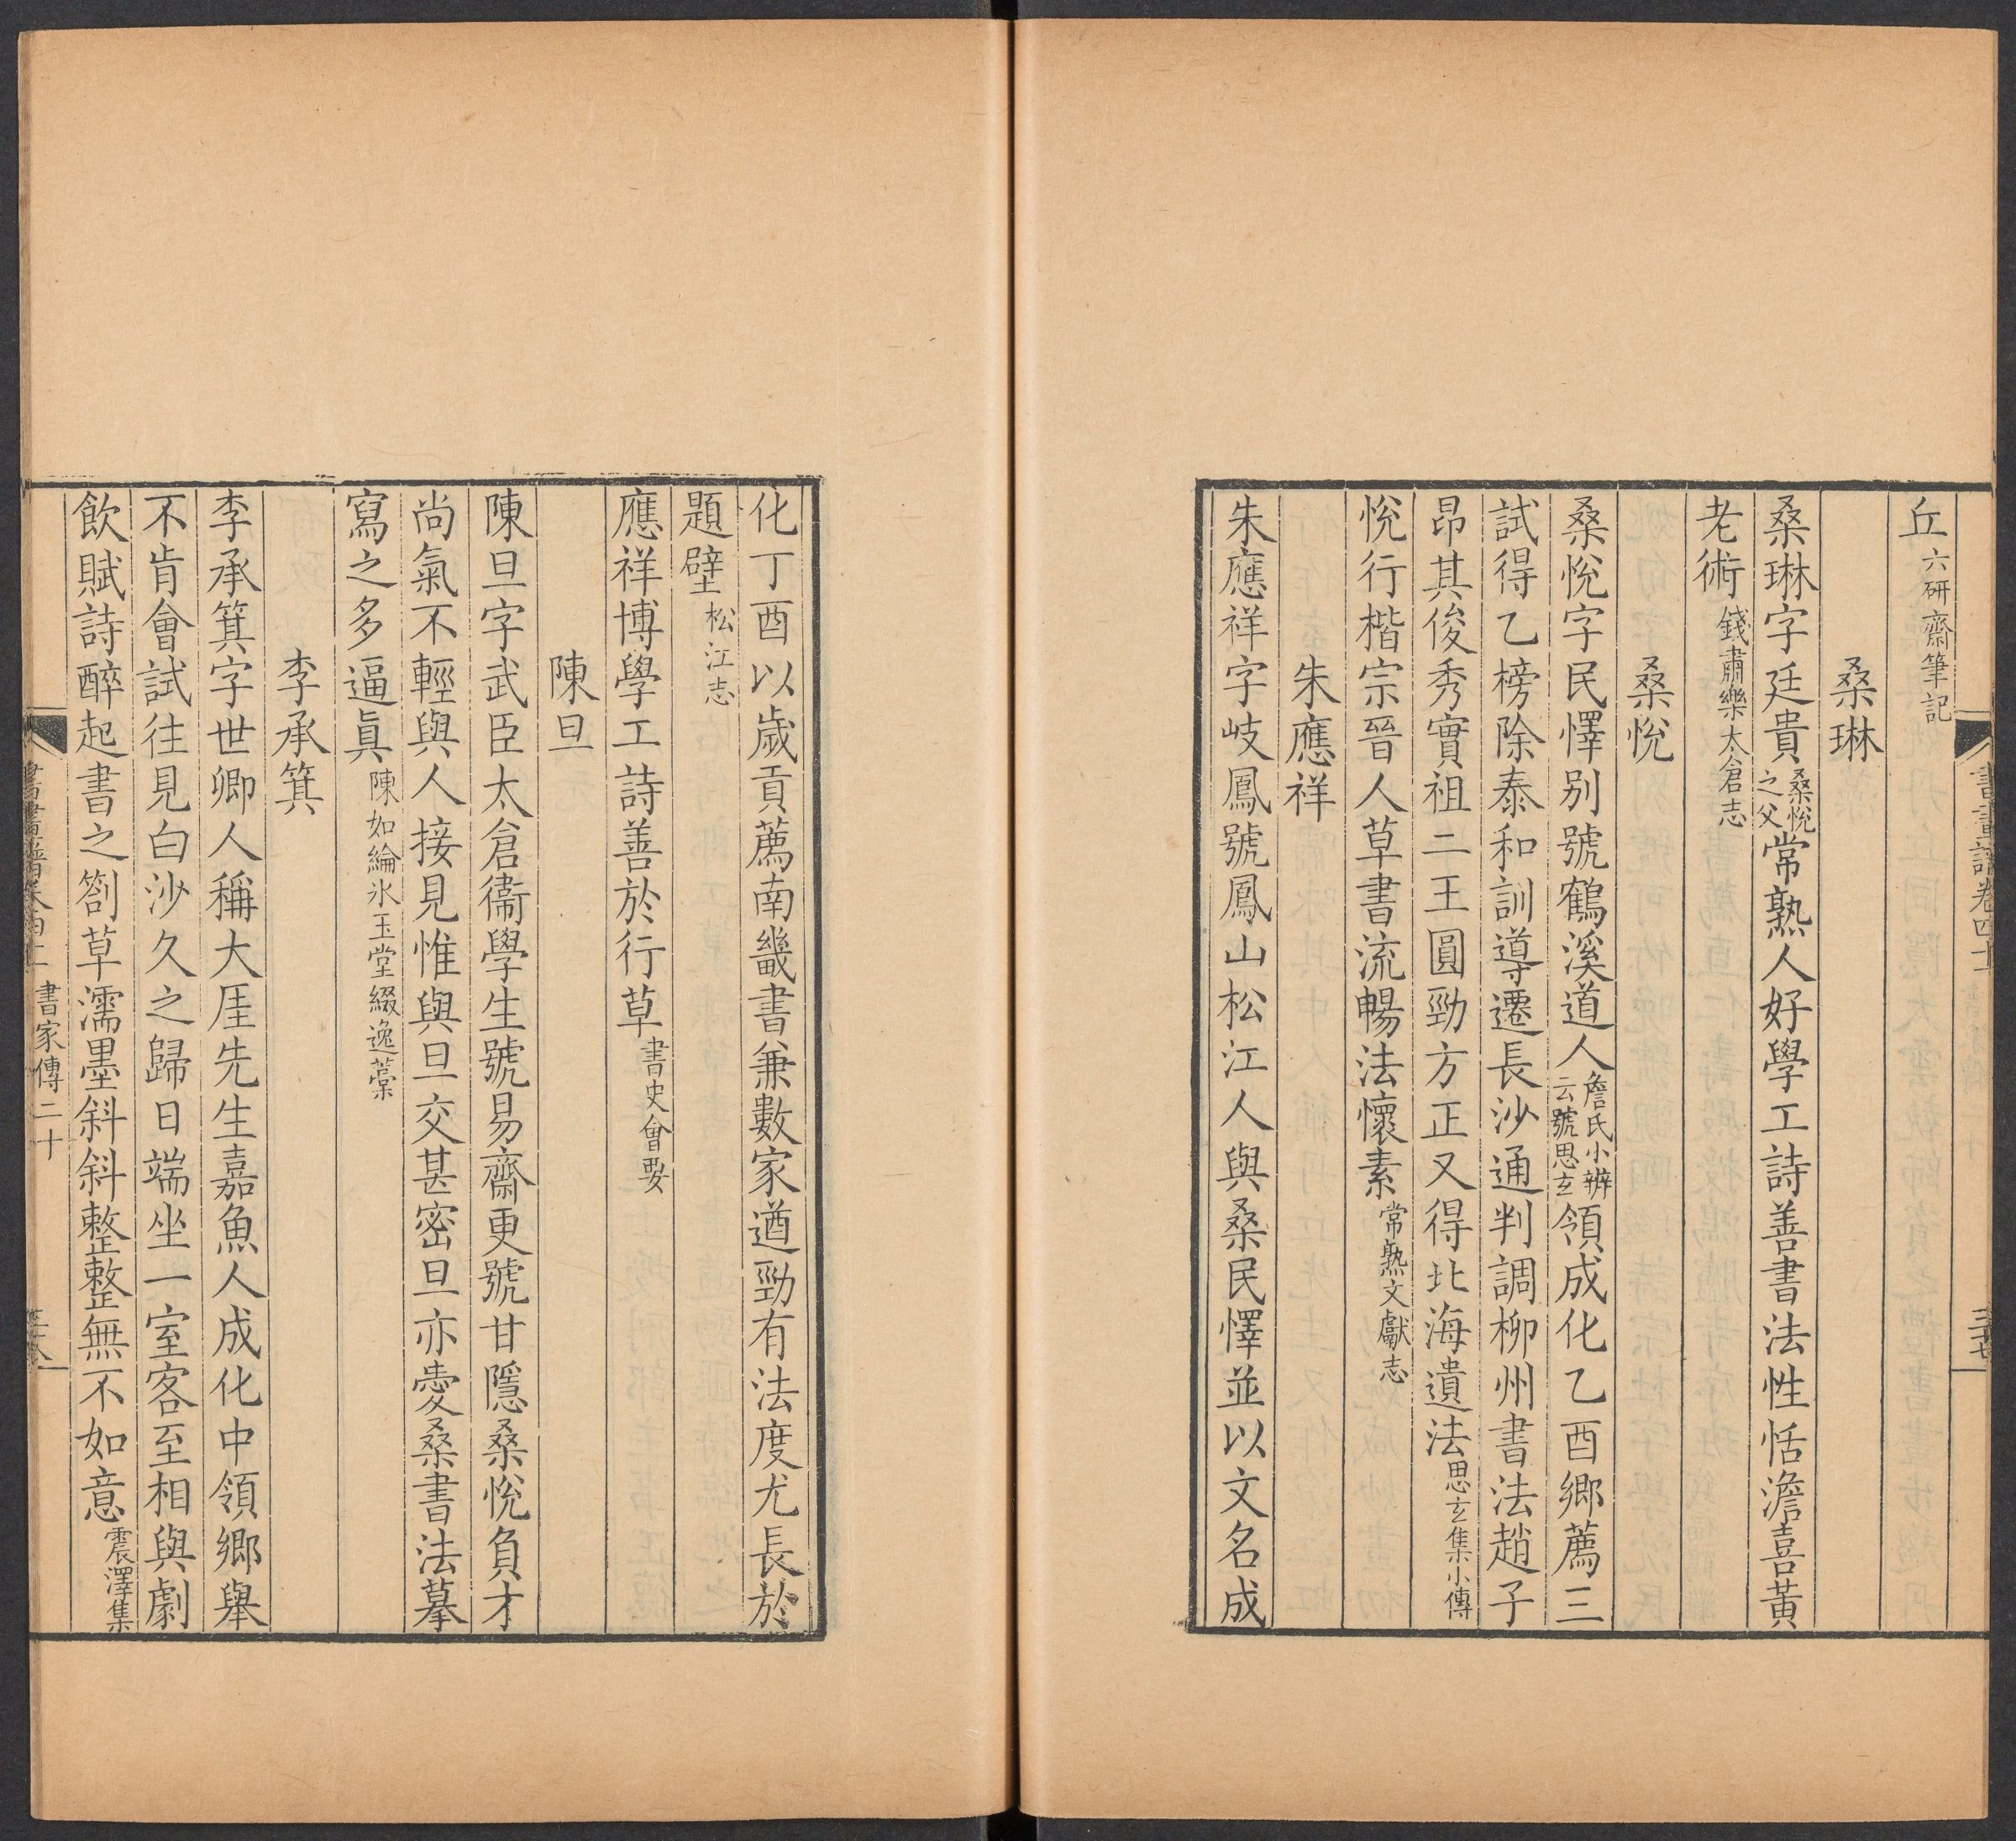 丘六研齋筆記
桑琳
桑琳字廷貴桑悅之父常熟人好學工詩善書法性恬澹喜黃
老術錢肅樂太倉志
桑悅
桑悅字民懌別號鶴溪道人詹氏小辨云號思玄領成化乙酉鄉薦三
試得乙榜除泰和訓導遷長沙通判調柳州書法趙子
昂其俊秀實祖二王圓勁方正又得北海遺法思玄集小傳
悅行楷宗晉人草書流暢法懷素常熟文獻志
朱應祥
朱應祥字岐鳳號鳳山松江人與桑民懌並以文名成
化丁酉以歲貢薦南畿書兼數家遒勁有法度尤長於
題壁松江志
應祥博學工詩善於行草書史會要
陳旦
陳旦字武臣太倉衞學生號易齋更號甘隱桑悅負才
尚氣不輕與人接見惟與旦交甚密旦亦愛桑書法摹
寫之多逼眞陳如綸氷玉堂綴逸藁
李承箕
李承箕字世卿人稱大厓先生嘉魚人成化中領鄉舉
不肯會試往見白沙久之歸日端坐一室客至相與劇
飲賦詩醉起書之劄草濡墨斜斜整整無不如意震澤集
書家傳二十